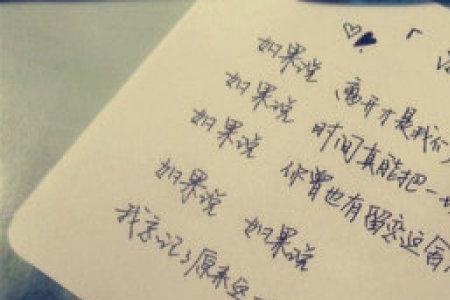 「
如果说 离开才是我们
如果说 时间真能把一切
如果说 你曾也有留恋
如果说 如果说
我忘记了原来